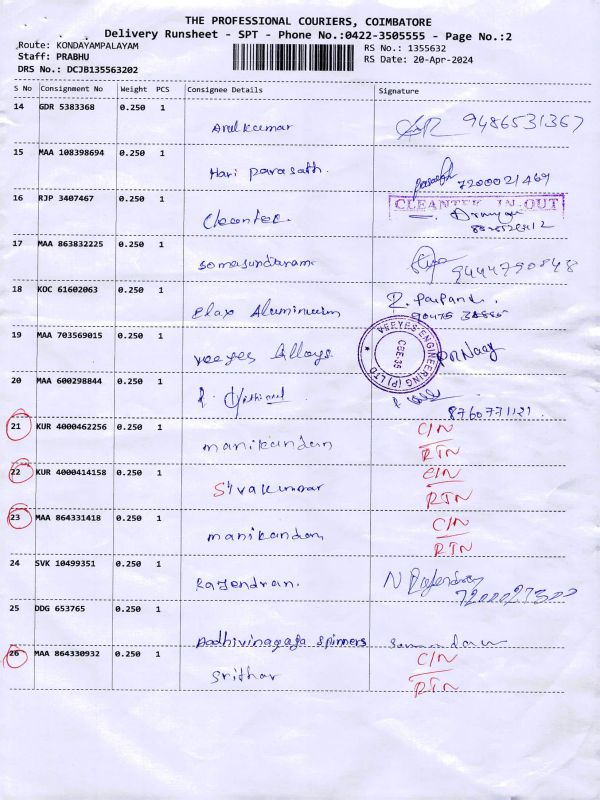 THE PROFESSIONAL COURIERS, COIMBATORE
Delivery Runsheet - SPT - Phone No.:0422-3505555 - Page No.:2
Route: KONDAYAMPALAYAM
Staff: PRABHU
DRS No.: DCJB135563202
RS No.: 1355632
RS Date: 20-Apr-2024
S No Consignment No Weight PCS Consignee Details Signature
14 GDR 5383368 0.250 1
Arulkumar 9486531367
15 MAA 108398694 0.250 1
Hari parasath. 7200021469
16 RJP 3407467 0.250 1
CLEANTEK IN OUT
Cleantec
17 MAA 863832225 0.250 1
Somasundaram
18 KOC 61602063 0.250 1
Elax Aluminium
19 MAA 703569015 0.250 1
veeyes Alloys
VEEYES ENGINEERING (P) LTD
CBE-35
20 MAA 600298844 0.250 1
8760771121
21 KUR 4000462256 0.250 1
manikandan C/N
RTN
22 KUR 4000414158 0.250 1
Sivakumar C/N
RTN
23 MAA 864331418 0.250 1
manikandan C/N
RTN
24 SVK 10499351 0.250 1
Rajendran. N Rajendran
25 DDG 653765 0.250 1
Aadhivinagaga spinners
26 MAA 864330932 0.250 1
Srithar C/N
RTN